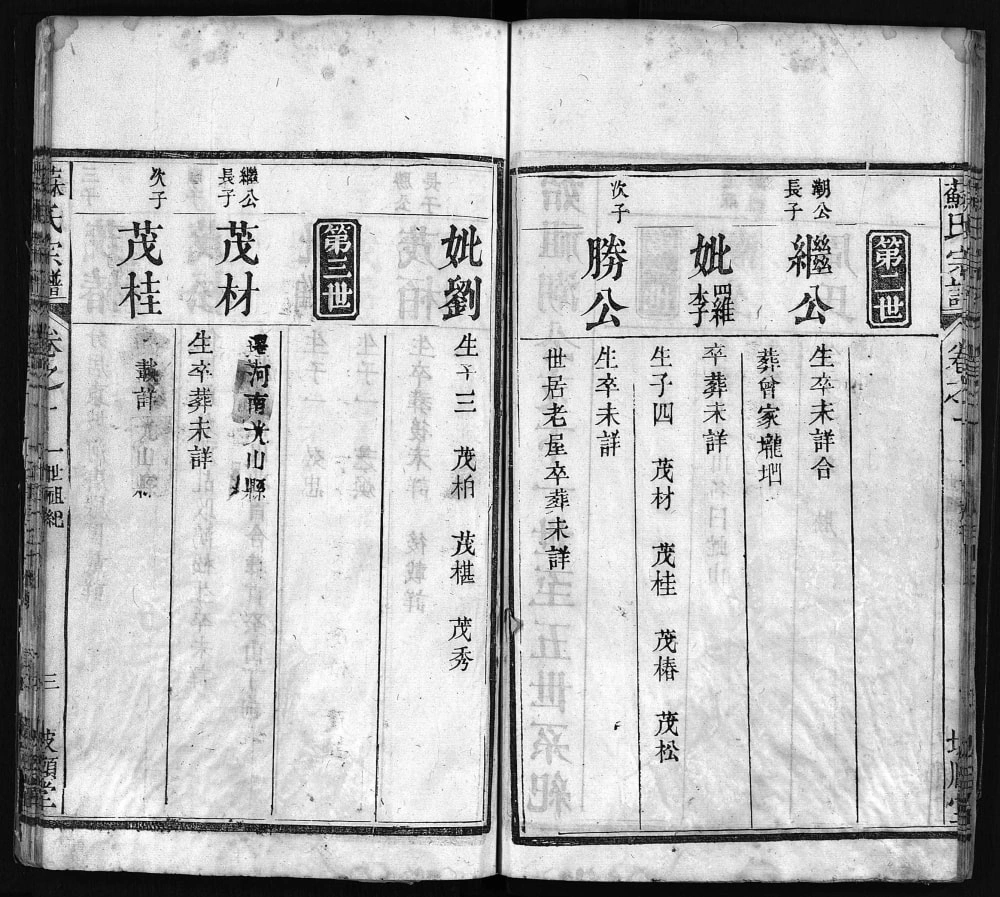 蘇氏宗譜
卷之一
第二世
潮公
長子
繼公
生卒未詳合
葬曾家壠垇
妣羅
李
卒葬未詳
生子四 茂材 茂桂 茂椿 茂松
次子
勝公
生卒未詳
世居老屋卒葬未詳
妣劉
生子三 茂柏 茂椹 茂秀
第三世
繼公
長子
茂材
遷河南光山縣
生卒葬未詳
次子
茂桂
載詳
蘇氏宗譜
卷之一
一世祖紀
三